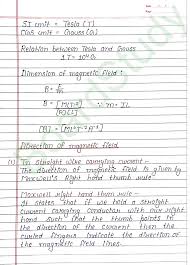 SI unit = Tesla (T)
CGS unit = Gauss (G)
Relation between Tesla and Gauss
1T = 10⁴ G
Dimension of magnetic field :
B = F/IL
B = [MLT⁻²] / [L] ∵ m = IL
[B] = [ML⁰T⁻²A⁻¹]
Direction of magnetic field
(1) In straight wire carrying current -
The direction of magnetic field is given by
Maxwell's Right hand thumb rule
Maxwell right hand thumb rule -
It states that if we hold a straight
current carrying conductor with our right
hand such that the thumb points to
the direction of the current then the
curled fingers indicate the direction of
the magnetic field lines.